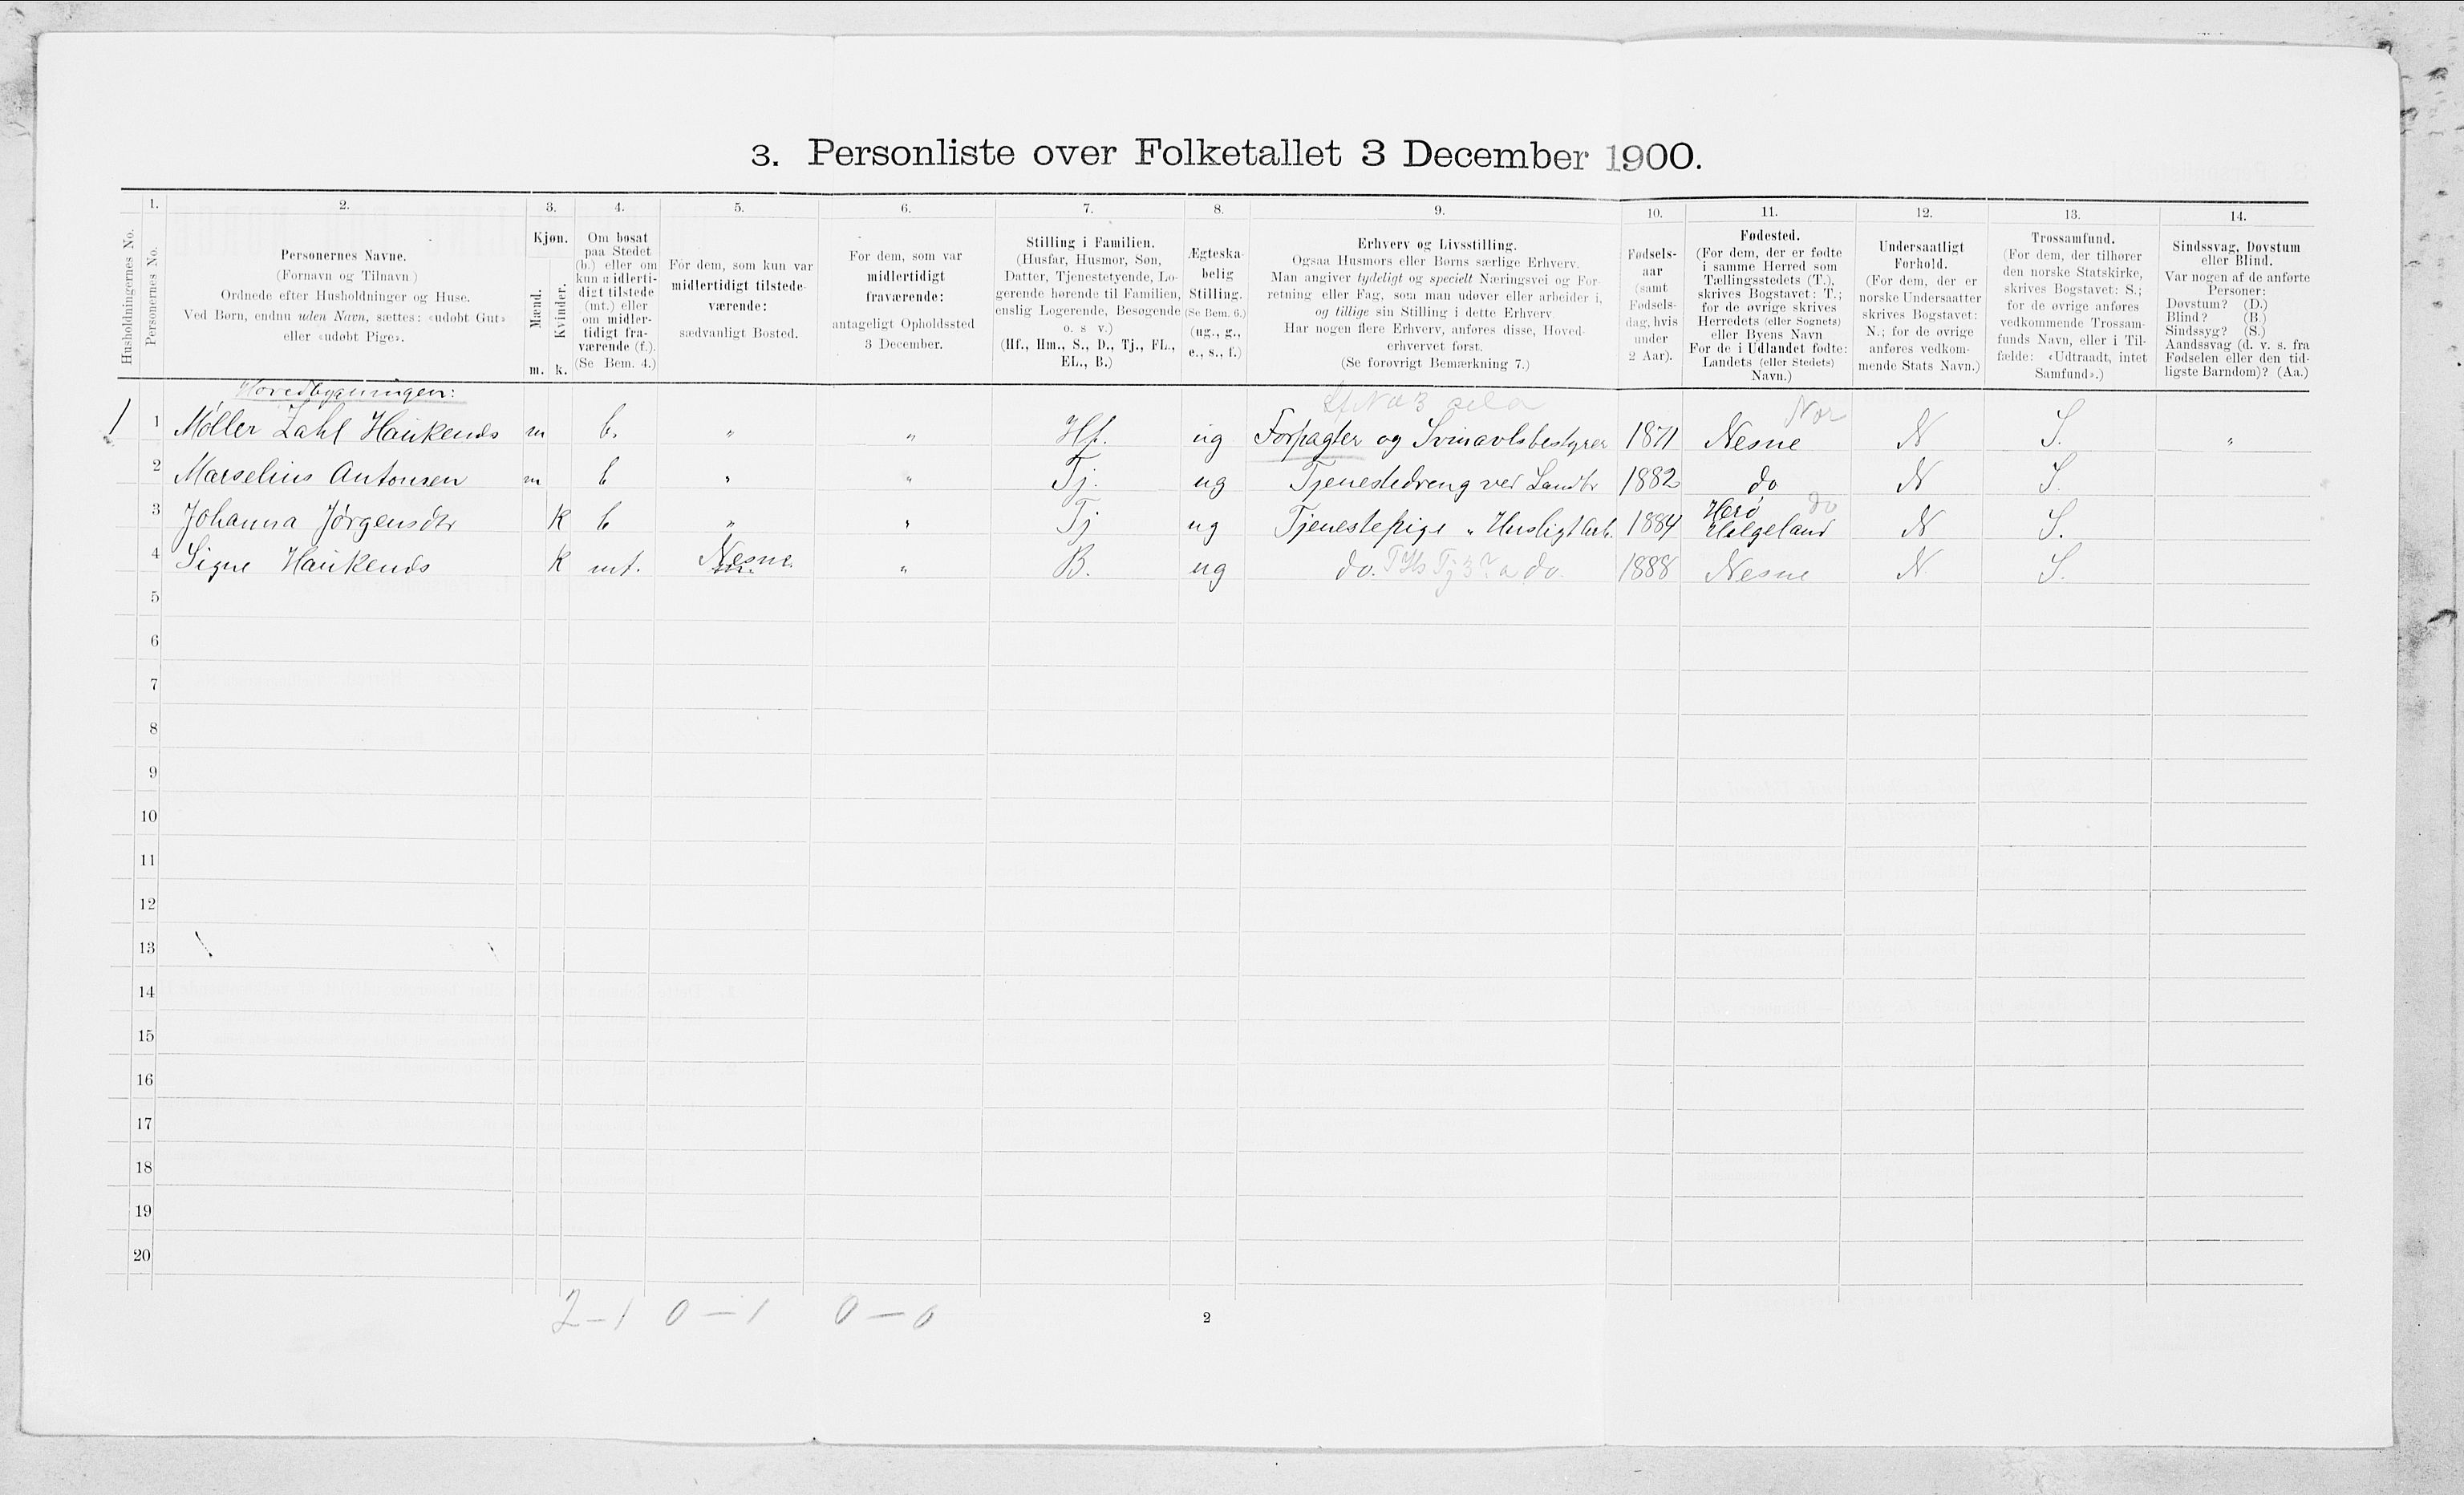 3. Personliste over Folketallet 3 December 1900.
1. 2. 3. 4. 5. 6. 7. 8. 9. 10. 11. 12. 13. 14.
Husholdningernes No.
Personernes No.
Personernes Navne.
(Fornavn og Tilnavn)
Ordnede efter Husholdninger og Huse.
Ved Børn, endnu uden Navn, sættes: «udøbt Gut»
eller «udøbt Pige».
Kjøn.
Mænd.
Kvinder.
m. k.
Om bosat
paa Stedet
(b.) eller om
kun midlerti-
digt tilstede
(mt.) eller
om midler-
tidigt fra-
værende (f.).
(Se Bem. 4.)
For dem, som kun var
midlertidigt tilstede-
værende:
sædvanligt Bosted.
For dem, som var
midlertidigt
fraværende:
antageligt Opholdssted
3 December.
Stilling i Familien.
(Husfar, Husmor, Søn,
Datter, Tjenestetyende, Lo-
gerende hørende til Familien,
enslig Logerende, Besøgende
o. s v.)
(Hf., Hm., S., D., Tj., FL.,
EL., B.)
Ægteska-
belig
Stilling.
(Se Bem. 6.)
(ug., g.,
e., s., f.)
Erhverv og Livsstilling.
Ogsaa Husmors eller Børns særlige Erhverv.
Man angiver tydeligt og specielt Næringsvei og For-
retning eller Fag, som man udøver eller arbeider i,
og tillige sin Stilling i dette Erhverv.
Har nogen flere Erhverv, anføres disse, Hoved-
erhvervet først.
(Se forøvrigt Bemærkning 7.)
Fødsels-
aar
(samt
Fødsels-
dag, hvis
under
2 Aar).
Fødested.
(For dem, der er fødte
i samme Herred som
Tællingsstedets (T.),
skrives Bogstavet: T.;
for de øvrige skrives
Herredets (eller Sognets)
eller Byens Navn.
For de i Udlandet fødte:
Landets (eller Stedets)
Navn.)
Undersaatligt
Forhold.
(For dem, der er
norske Undersaatter
skrives Bogstavet:
N.; for de øvrige
anføres vedkom-
mende Stats Navn.)
Trossamfund.
(For dem, der tilhører
den norske Statskirke,
skrives Bogstavet: S.;
for de øvrige anføres
vedkommende Trossam-
funds Navn, eller i Til-
fælde: «Udtraadt, intet
Samfund».)
Sindssvag, Døvstum
eller Blind.
Var nogen af de anførte
Personer:
Døvstum? (D.)
Blind? (B.)
Sindssyg? (S.)
Aandssvag (d. v. s. fra
Fødselen eller den tid-
ligste Barndom)? (Aa.)
Hovedbygningen:
Nor
1 1 Møller Zahl Haukenes m b. " " Hf. ug Forpagter og Svinavlsbestyrer 1871 Nesne N S. "
2 Marselius Antonsen m b " " Tj. ug Tjenestedreng ved Landbr 1882 do N S.
3 Johanna Jørgensdtr K b " " Tj ug Tjenestepige " Husligt Arb. 1884 Herø Helgeland do N S.
4 Signe Haukenes K mt. Nesne " B. ug do. do. 1888 Nesne N S.
5
6
7
8
9
10
11
12
13
14
15
16
17
18
19
20
2-1 0-1 0-0
2